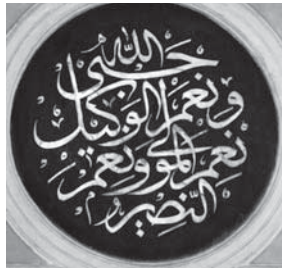 حسبي الله
ونعم الوكيل
نعم المولى ونعم
النصير